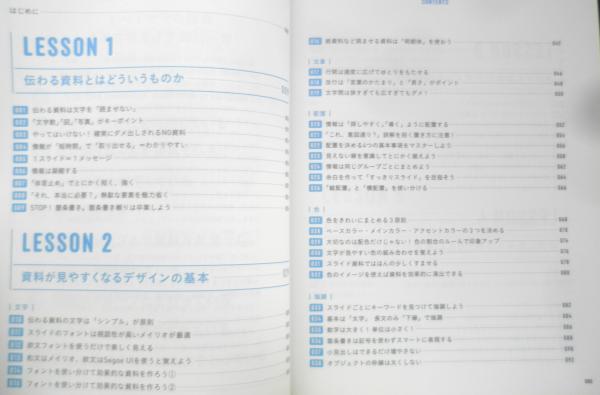 はじめに
LESSON 1
伝わる資料とはどういうものか
001 伝わる資料は文字を「読ませない」
002 「文字数」「図」「写真」がキーポイント
003 やってはいけない!確実にダメ出しされるNG資料
004 情報が「短時間」で「取り出せる」=わかりやすい
005 1スライド=1メッセージ
006 情報は凝縮する
007 「体言止め」でとにかく短く、強く
008 「それ、本当に必要?」無駄な要素を極力省く
009 STOP!箇条書き。箇条書き頼りは卒業しよう
LESSON 2
資料が見やすくなるデザインの基本
| 文字 |
010 伝わる資料の文字は「シンプル」が原則
011 スライドのフォントは視認性が高いメイリオが最適
012 欧文フォントを使うだけで美しく見える
013 和文はメイリオ、欧文はSegoe UIを使うと覚えよう
014 フォントを使い分けて効果的な資料を作ろう①
015 フォントを使い分けて効果的な資料を作ろう②
CONTENTS
016 紙資料など読ませる資料は「明朝体」を使おう 045
| 文章 |
017 行間は適度に広げてゆとりをもたせる 046
018 改行は「言葉のかたまり」と「長さ」がポイント 048
019 文字間は狭すぎても広すぎてもダメ! 050
| 配置 |
020 情報は「探しやすく」、「導く」ように配置する
021 「これ、意図通り?」誤解を招く置き方に注意!
022 配置を決める4つの基本事項をマスターしよう
023 見えない線を意識してとにかく揃えよう
024 情報は同じグループごとにまとめよう
025 余白を作って「すっきりスライド」を目指そう
026 「縦配置」と「横配置」を使い分ける
| 色 |
027 色をきれいにまとめる3原則 068
028 ベースカラー・メインカラー・アクセントカラーの3つを決める
029 大切なのは配色だけじゃない!色の割合のルールで印象アップ 074
030 文字が見やすい色の組み合わせを覚えよう
031 スライド資料ではほんの少しくすませる
032 色のイメージを使えば資料を効果的に演出できる 080
| 強調 |
033 スライドごとにキーワードを見つけて強調しよう 082
034 基本は「太字」 長文のみ「下線」で強調
035 数字は大きく!単位は小さく!
036 箇条書きは記号を使わずスマートに表現する
037 小見出しはできるだけ増やさない
038 オブジェクトの枠線は太くしない 092